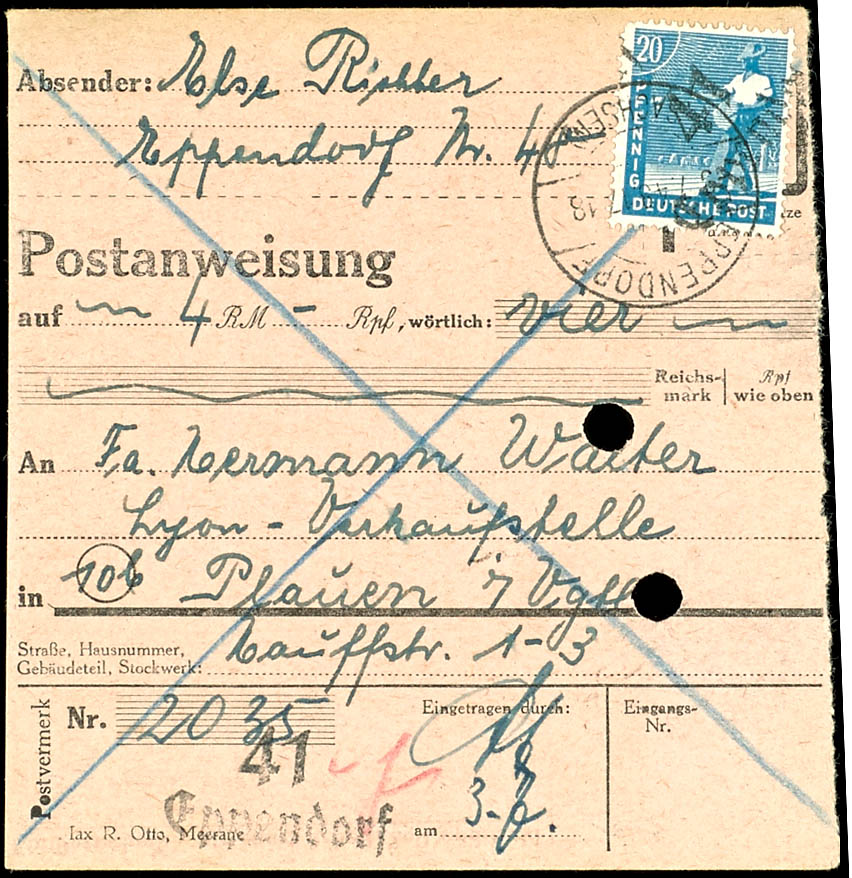 Absender: Else Richter
Eppendorf Nr. 48
20
PFENNIG
DEUTSCHE POST
EPPENDORF
Postanweisung
auf 4 RM – Rpf, wörtlich: vier
Reichs- Rpf
mark wie oben
An Fa. Hermann Walter
Lyon - Verkaufstelle
in 10b Plauen i/Vgtl
Straße, Hausnummer,
Gebäudeteil, Stockwerk: Hauffstr. 1-3
Postvermerk
Nr. 2035
Eingetragen durch:
Eingangs-
Nr.
41
Eppendorf
lax R. Otto, Meerane
am